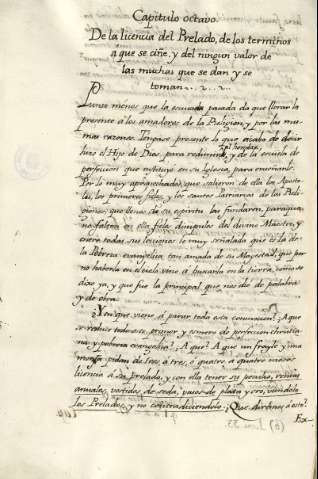 Capitulo octavo.
De la licencia del Prelado, de los terminos
a que se ciñe, y del ningun valor de
las muchas que se dan y se
toman
No menos que la escuela pasada da que llorar la
presente a los amadores de la Religion, y por las mis-
mas razones. Tengase presente lo que acabo de decir
hizo el Hijo de Dios para redimir y de la escuela de
perfeccion que instituyó en su Iglesia, para enseñarle.
Por lo muy aprovechados que salieron de ella los Aposto-
les, los primeros fieles, y los santos Patriarcas de las Reli-
giones, que llenos de su espiritu las fundaron, para que
no faltasen en ella fieles discipulos del divino Maestro, y
entre todas sus lecciones la muy señalada que es la de
la Pobreza evangelica tan amada de su Magestad, que por
no haberla en el cielo vino á buscarla en la tierra, como se
dijo ya, y que fue la principal que nos dio de palabra
y de obra.
¿Y en que viene á parar todo esta
se reduce todo este primor y esmero de perfeccion christia-
na, y pobreza evangelica? ¿A que? A que un frayle y una
monja pidan de tres á tres, ó quatro a quatro meses
licencia á su prelado, y con ella tener su peculio, rentas
anuales, vestidos de seda, vasos de plata y oro, viendolo
los Prelados, y no contradiciendolo. ¿Que diremos á esto?
Ex-